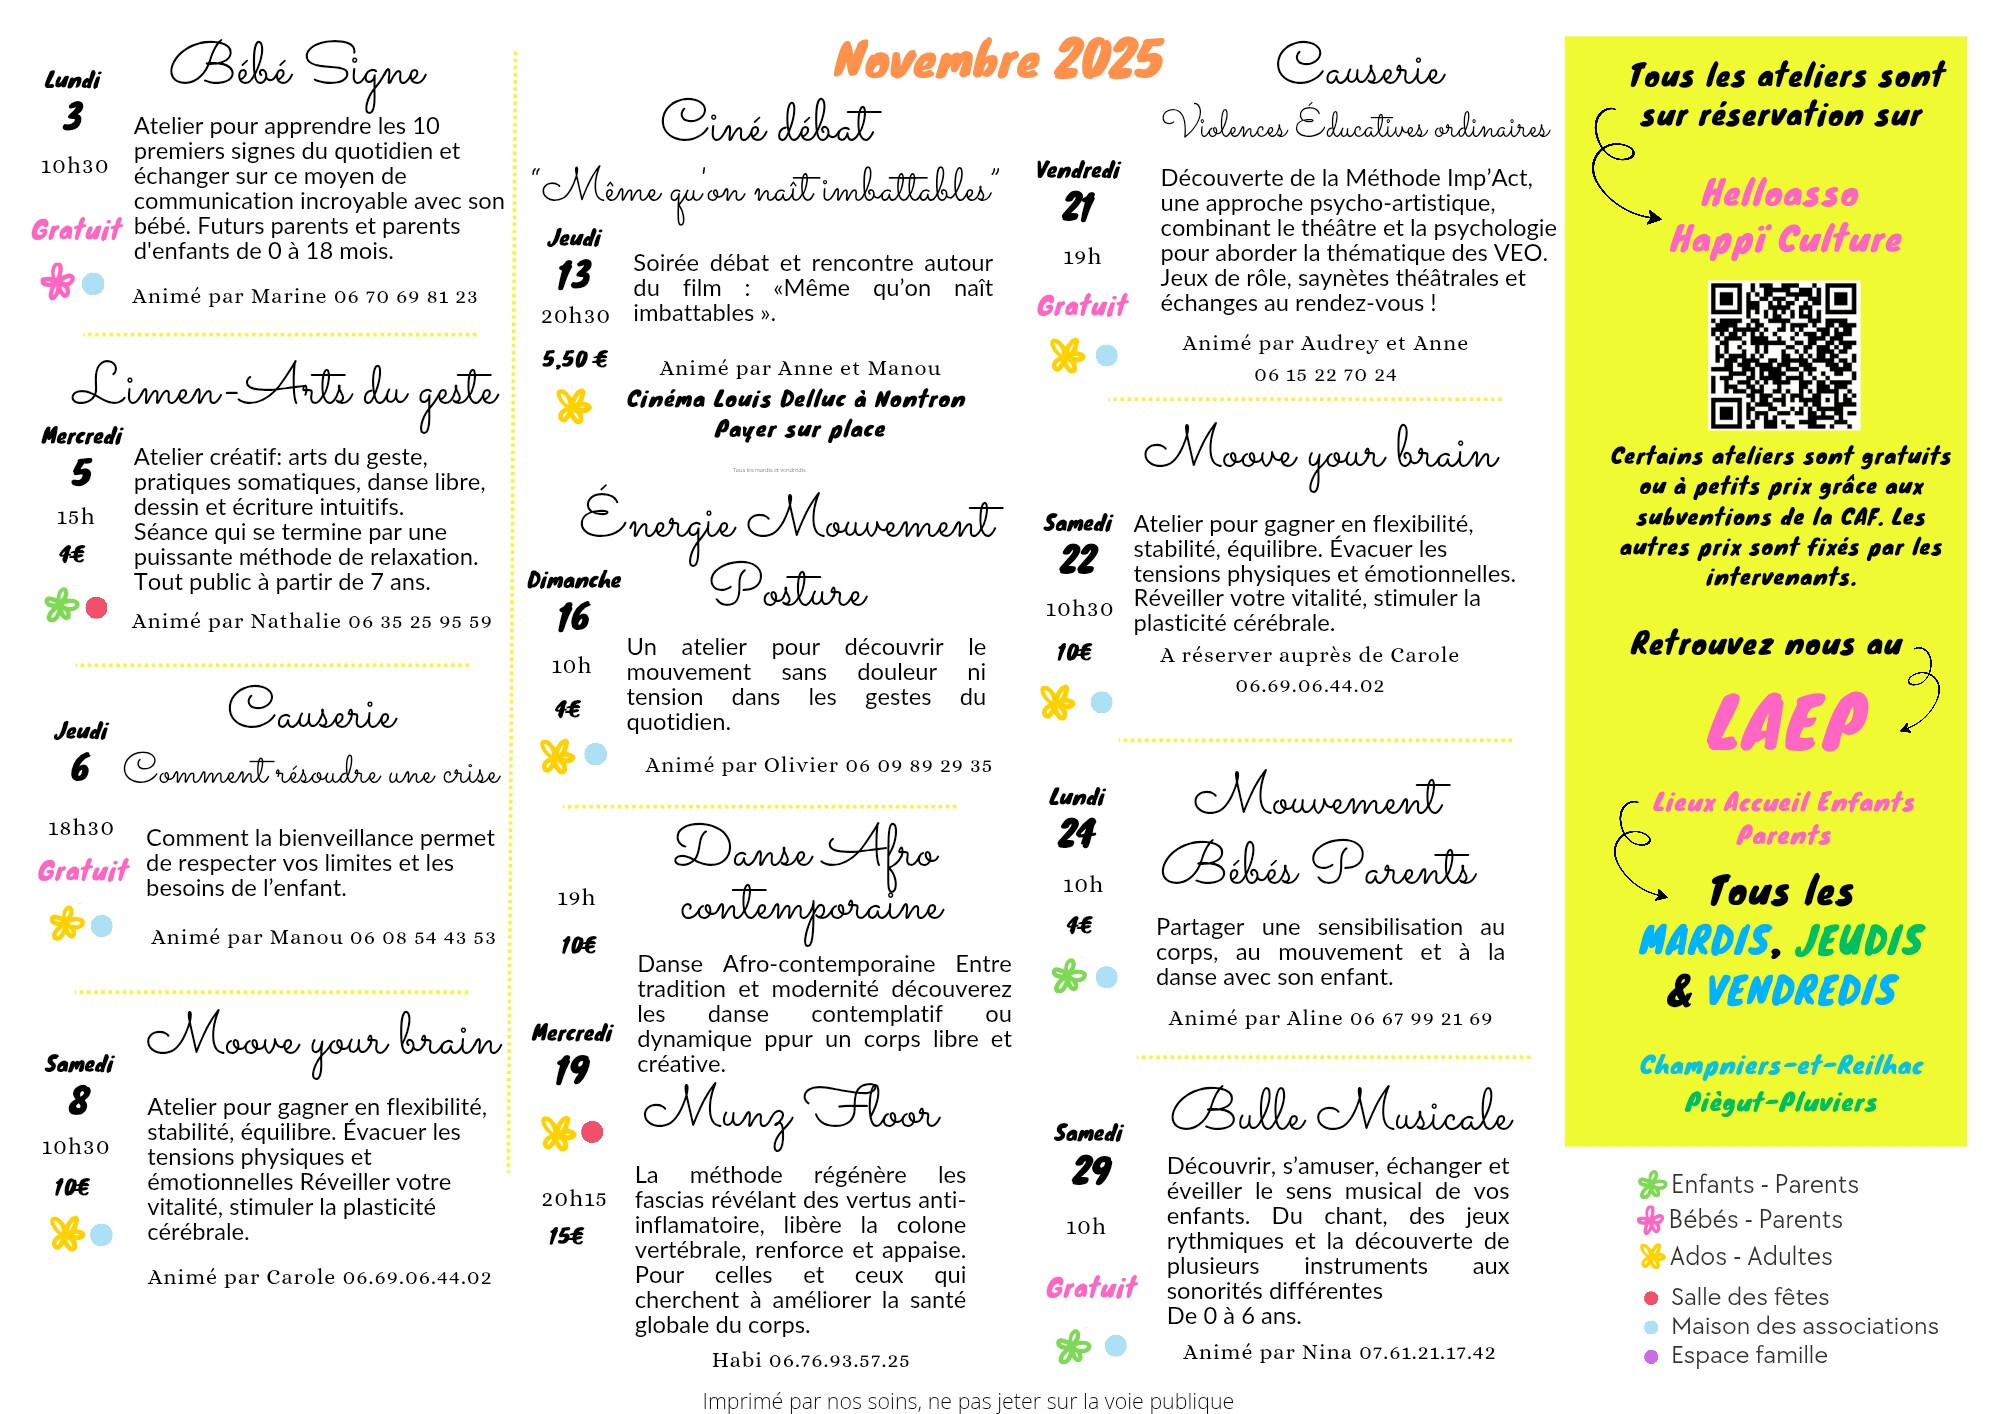 Bébé Signe
Lundi
3
10h30
Gratuit
Atelier pour apprendre les 10
premiers signes du quotidien et
échanger sur ce moyen de
communication incroyable avec son
bébé. Futurs parents et parents
d'enfants de 0 à 18 mois.
Animé par Marine 06 70 69 81 23
Limen-Arts du geste
Mercredi
5
15h
4€
Atelier créatif: arts du geste,
pratiques somatiques, danse libre,
dessin et écriture intuitifs.
Séance qui se termine par une
puissante méthode de relaxation.
Tout public à partir de 7 ans.
Animé par Nathalie 06 35 25 95 59
Causerie
Comment résoudre une crise
Jeudi
6
18h30
Gratuit
Comment la bienveillance permet
de respecter vos limites et les
besoins de l'enfant.
Animé par Manou 06 08 54 43 53
Moove your brain
Samedi
8
10h30
10€
Atelier pour gagner en flexibilité,
stabilité, équilibre. Évacuer les
tensions physiques et
émotionnelles Réveiller votre
vitalité, stimuler la plasticité
cérébrale.
Animé par Carole 06.69.06.44.02
Novembre 2025
Ciné débat
“Même qu'on naît imbattables”
Jeudi
13
20h30
5,50 €
Soirée débat et rencontre autour
du film : «Même qu’on naît
imbattables ».
Animé par Anne et Manou
Cinéma Louis Delluc à Nontron
Payer sur place
Tous les mardis et vendredis
Énergie Mouvement
Posture
Dimanche
16
10h
4€
Un atelier pour découvrir le
mouvement sans douleur ni
tension dans les gestes du
quotidien.
Animé par Olivier 06 09 89 29 35
Danse Afro
contemporaine
19h
10€
Danse Afro-contemporaine Entre
tradition et modernité découverez
les danse contemplatif ou
dynamique ppur un corps libre et
créative.
Mercredi
19
Munz Floor
20h15
15€
La méthode régénère les
fascias révélant des vertus anti-
inflamatoire, libère la colone
vertébrale, renforce et appaise.
Pour celles et ceux qui
cherchent à améliorer la santé
globale du corps.
Habi 06.76.93.57.25
Causerie
Violences Éducatives ordinaires
Vendredi
21
19h
Gratuit
Découverte de la Méthode Imp’Act,
une approche psycho-artistique,
combinant le théâtre et la psychologie
pour aborder la thématique des VEO.
Jeux de rôle, saynètes théâtrales et
échanges au rendez-vous !
Animé par Audrey et Anne
06 15 22 70 24
Moove your brain
Samedi
22
10h30
10€
Atelier pour gagner en flexibilité,
stabilité, équilibre. Évacuer les
tensions physiques et émotionnelles.
Réveiller votre vitalité, stimuler la
plasticité cérébrale.
A réserver auprès de Carole
06.69.06.44.02
Mouvement
Bébés Parents
Lundi
24
10h
4€
Partager une sensibilisation au
corps, au mouvement et à la
danse avec son enfant.
Animé par Aline 06 67 99 21 69
Bulle Musicale
Samedi
29
10h
Gratuit
Découvrir, s’amuser, échanger et
éveiller le sens musical de vos
enfants. Du chant, des jeux
rythmiques et la découverte de
plusieurs instruments aux
sonorités différentes
De 0 à 6 ans.
Animé par Nina 07.61.21.17.42
Tous les ateliers sont
sur réservation sur
Helloasso
Happï Culture
Certains ateliers sont gratuits
ou à petits prix grâce aux
subventions de la CAF. Les
autres prix sont fixés par les
intervenants.
Retrouvez nous au
LAEP
Lieux Accueil Enfants
Parents
Tous les
MARDIS, JEUDIS
& VENDREDIS
Champniers-et-Reilhac
Piègut-Pluviers
Enfants - Parents
Bébés - Parents
Ados - Adultes
Salle des fêtes
Maison des associations
Espace famille
Imprimé par nos soins, ne pas jeter sur la voie publique